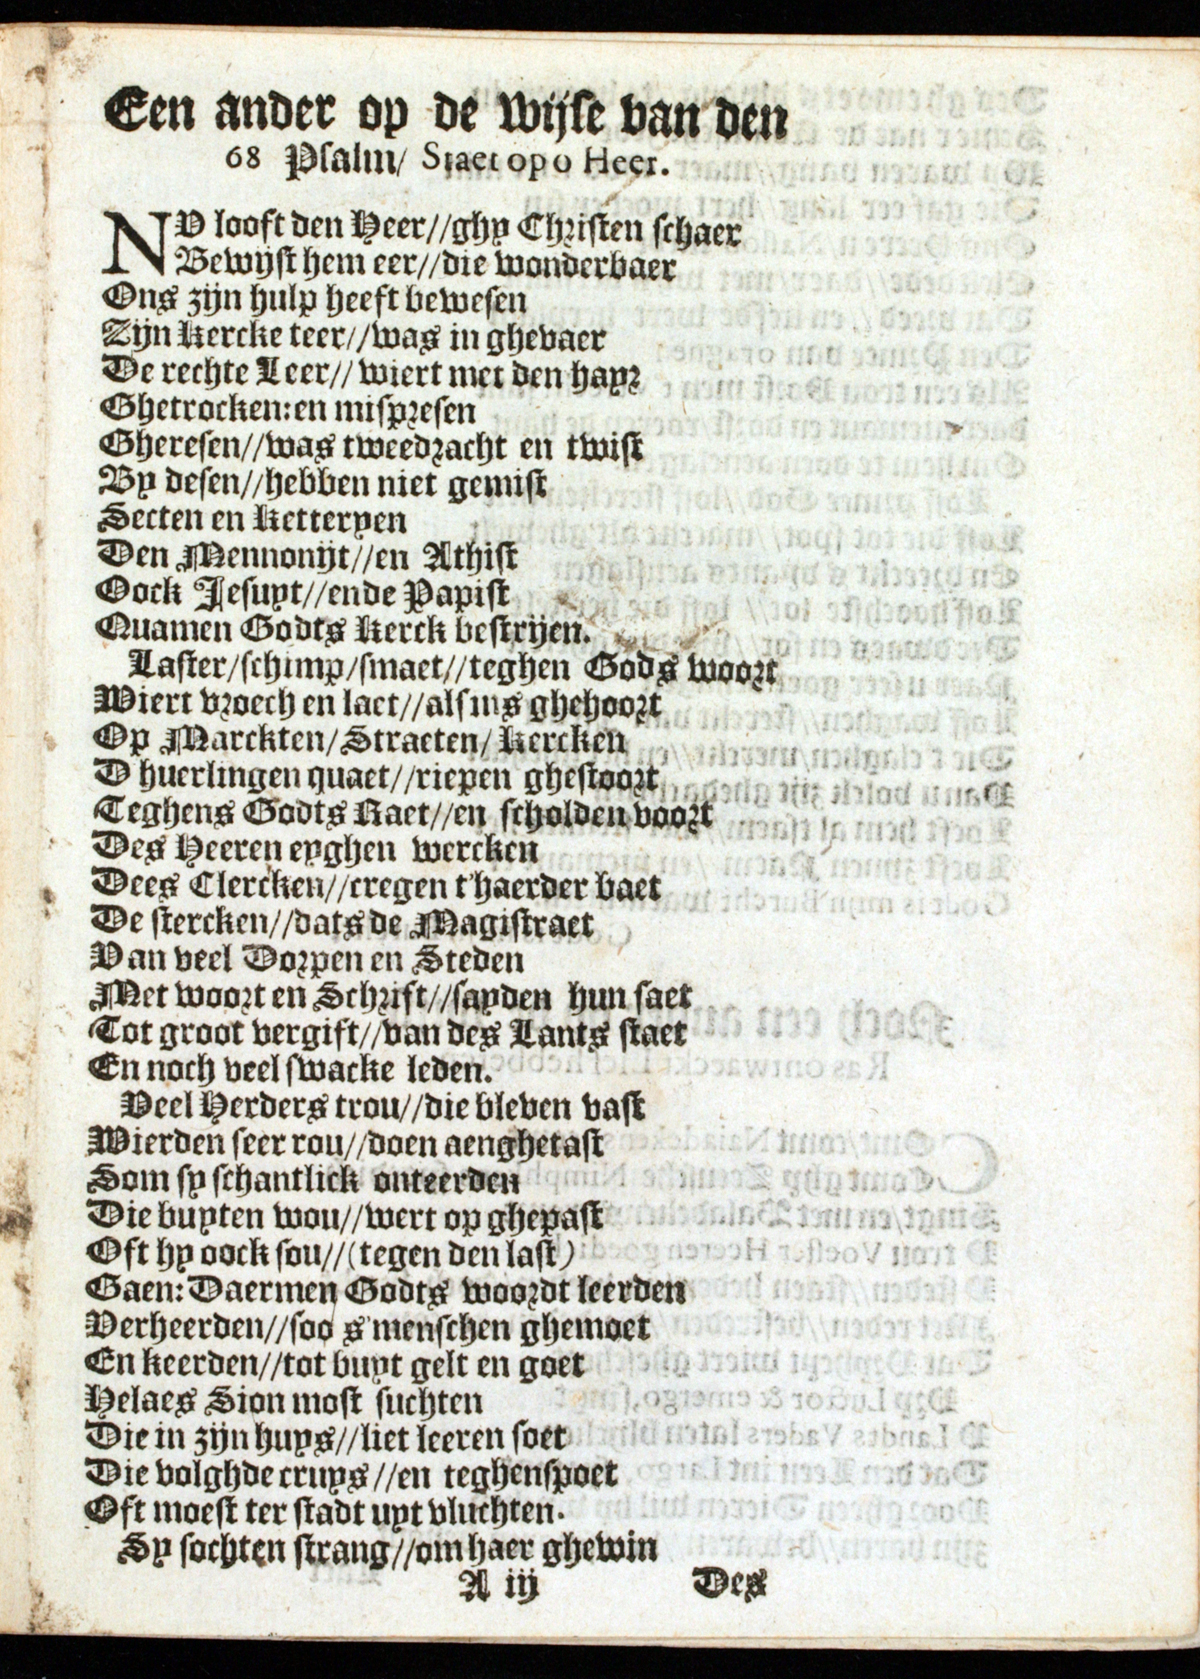 Een ander op de wijse van den
68 Psalm/ Staet op o Heer.
NV looft den Heer//ghy Christen schaer
Bewijst hem eer//die wonderbaer
Ons zijn hulp heeft bewesen
Zijn Kercke teer//was in ghevaer
De rechte Leer// wiert met den hayr
Ghetrocken: en mispresen
Gheresen//was tweedracht en twist
By desen//hebben niet gemist
Secten en Ketteryen
Den Mennonijt//en Athist
Oock Jesuyt//ende Papist
Quamen Godts Kerck bestrijen.
Laster/schimp/smaet//teghen Gods woort
Wiert vroech en laet//alsins ghehoort
Op Marckten/Straeten/Kercken
D huerlingen quaet//riepen ghestoort
Teghens Godts Raet//en scholden voort
Des Heeren eyghen wercken
Dees Clercken//cregen t'haerder baet
De stercken//dats de Magistraet
Van veel Dorpen en Steden
Met woort en Schrift//sayden hun saet
Tot groot vergift//van des Lants staet
En noch veel swacke leden.
Veel Herders trou//die bleven vast
Wierden seer rou//doen aenghetast
Som sy schantlick onteerden
Die buyten wou//wert op ghepast
Oft hy oock sou//(tegen den last)
Gaen: Daermen Godts woordt leerden
Verheerden//soo s'menschen ghemoet
En keerden//tot buyt gelt en goet
Helaes Sion most suchten
Die in zijn huys//liet leeren soet
Die volghde cruys//en teghenspoet
Oft moest ter stadt uyt vluchten.
Sy sochten strang//om haer ghewin
A iij
Des